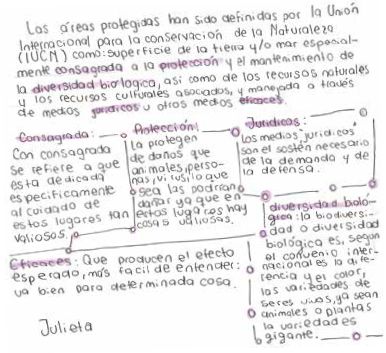 Las áreas protegidas han sido definidas por la Unión
Internacional para la conservación de la Naturaleza
(IUCM) como: superficie de la tierra y/o mar especial-
mente consagrada a la protección y el mantenimiento de
la diversidad biologica, así como de los recursos naturales
y los recursos culturales asociados, y manejada a través
de medios juridicos u otros medios eficaces.
Consagrada:
Con consagrada
se refiere a que
esta dedicada
especificamente
al cuidado de
estos lugares tan
valiosos.
Protección:
La protegen
de daños que
animales, perso-
nas, virus, lo que
sea las podrian
dañar ya que en
estos lugares hay
cosas valiosas.
Juridicos:
Los medios "juridicos"
son el sostén necesario
de la demanda y de
la defensa.
diversidad bioló-
gica: la biodiversi-
dad o diversidad
biológica es, según
el convenio inter-
nacional es la dife-
rencia y el color,
las variedades de
seres vivos, ya sean
animales o plantas
la variedad es
gigante.
Eficaces: Que producen el efecto
esperado, más facil de entender:
va bien para determinada cosa.
Julieta